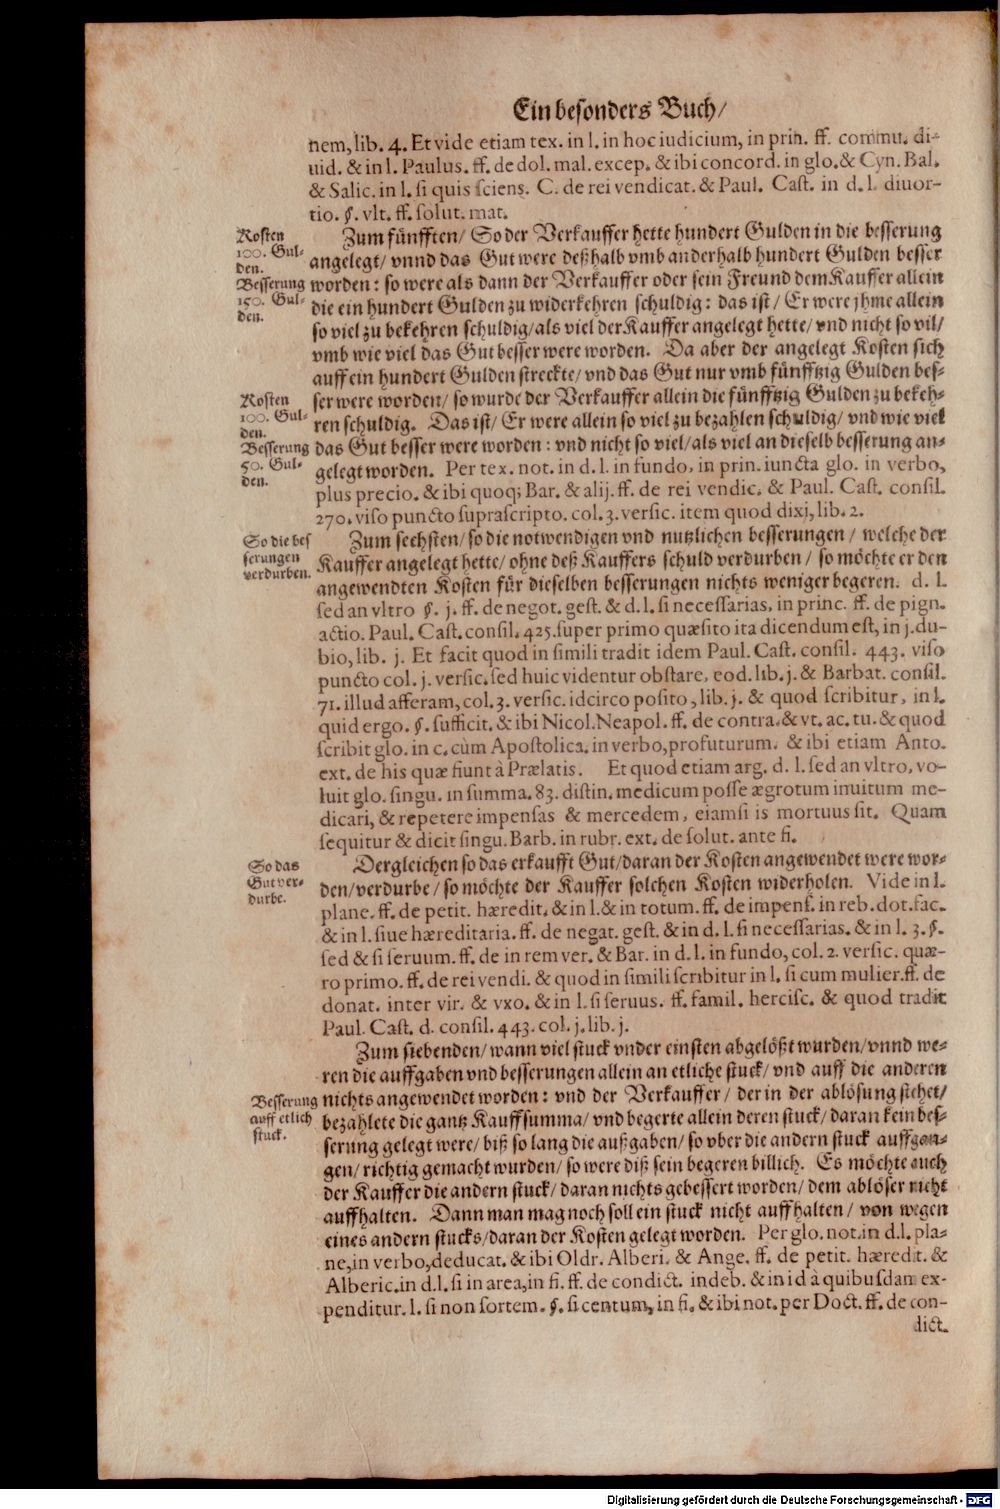 Ein besonders Buch/
nem, lib. 4. Et vide etiam tex. in l. in hoc iudicium, in prin. ff. commu. di-
uid. & in l. Paulus. ff. de dol. mal. excep. & ibi concord. in glo. & Cyn. Bal.
& Salic. in l. si quis sciens. C. de rei vendicat. & Paul. Cast. in d. l. diuor-
tio. §. vlt. ff. solut. mat.
Kosten
100. Gul-
den.
Besserung
150. Gul-
den.
Zum fünfften/ So der Verkauffer hette hundert Gulden in die besserung
angelegt/ vnnd das Gut were deßhalb vmb anderhalb hundert Gulden besser
worden: so were als dann der Verkauffer oder sein Freund dem Kauffer allein
die ein hundert Gulden zu widerkehren schuldig: das ist/ Er were jhme allein
so viel zu bekehren schuldig/ als viel der Kauffer angelegt hette/ vnd nicht so vil/
vmb wie viel das Gut besser were worden. Da aber der angelegt Kosten sich
auff ein hundert Gulden streckte/ vnd das Gut nur vmb fünfftzig Gulden bes-
ser were worden/ so wurde der Verkauffer allein die fünfftzig Gulden zu bekeh-
ren schuldig. Das ist/ Er were allein so viel zu bezahlen schuldig/ vnd wie viel
das Gut besser were worden: vnd nicht so viel/ als viel an dieselb besserung an-
gelegt worden. Per tex. not. in d. l. in fundo, in prin. iuncta glo. in verbo,
plus precio. & ibi quoq; Bar. & alij. ff. de rei vendic. & Paul. Cast. consil.
270. viso puncto suprascripto. col. 3. versic. item quod dixi, lib. 2.
Kosten
100. Gul-
den.
Besserung
50. Gul-
den.
So die bes
serungen
verdurben.
Zum sechsten/ so die notwendigen vnd nutzlichen besserungen/ welche der
Kauffer angelegt hette/ ohne deß Kauffers schuld verdurben/ so möchte er den
angewendten Kosten für dieselben besserungen nichts weniger begeren. d. l.
sed an vltro §. j. ff. de negot. gest. & d. l. si necessarias. in princ. ff. de pign.
actio. Paul. Cast. consil. 425. super primo quæsito ita dicendum est, in j. du-
bio, lib. j. Et facit quod in simili tradit idem Paul. Cast. consil. 443. viso
puncto col. j. versic. sed huic videntur obstare, eod. lib. j. & Barbat. consil.
71. illud afferam, col. 3. versic. idcirco posito, lib. j. & quod scribitur, in l.
quid ergo. §. sufficit. & ibi Nicol. Neapol. ff. de contra. & vt. ac. tu. & quod
scribit glo. in c. cùm Apostolica. in verbo, profuturum. & ibi etiam Anto.
ext. de his quæ fiunt à Prælatis. Et quod etiam arg. d. l. sed an vltro, vo-
luit glo. singu. in summa. 83. distin. medicum posse ægrotum inuitum me-
dicari, & repetere impensas & mercedem, eiamsi is mortuus sit. Quam
sequitur & dicit singu. Barb. in rubr. ext. de solut. ante fi.
So das
Gut ver-
durbe.
Dergleichen so das erkaufft Gut/ daran der Kosten angewendet were wor-
den/ verdurbe/ so möchte der Kauffer solchen Kosten widerholen. Vide in l.
plane. ff. de petit. hæredit. & in l. & in totum. ff. de impens. in reb. dot. fac.
& in l. siue hæreditaria. ff. de negat. gest. & in d. l. si necessarias. & in l. 3. §.
sed & si seruum. ff. de in rem ver. & Bar. in d. l. in fundo, col. 2. versic. quæ-
ro primo. ff. de rei vendi. & quod in simili scribitur in l. si cum mulier. ff. de
donat. inter vir. & vxo. & in l. si seruus. ff. famil. hercisc. & quod tradit
Paul. Cast. d. consil. 443. col. j. lib. j.
Zum siebenden/ wann viel stuck vnder einsten abgelößt wurden/ vnnd we-
ren die auffgaben vnd besserungen allein an etliche stuck/ vnd auff die anderen
nichts angewendet worden: vnd der Verkauffer/ der in der ablösung stehet/
bezahlete die gantz Kauffsumma/ vnd begerte allein deren stuck/ daran kein bes-
serung gelegt were/ biß so lang die außgaben/ so vber die andern stuck auffgan-
gen/ richtig gemacht wurden/ so were diß sein begeren billich. Es möchte auch
der Kauffer die andern stuck/ daran nichts gebessert worden/ dem ablöser nicht
auffhalten. Dann man mag noch soll ein stuck nicht auffhalten/ von wegen
eines andern stucks/ daran der Kosten gelegt worden. Per glo. not. in d. l. pla-
ne, in verbo, deducat. & ibi Oldr. Alberi. & Ange. ff. de petit. hæredit. &
Alberic. in d. l. si in area, in fi. ff. de condict. indeb. & in id à quibusdam ex-
penditur. l. si non sortem. §. si centum, in fi. & ibi not. per Doct. ff. de con-
dict.
Besserung
auff etlich
stuck.
Digitalisierung gefördert durch die Deutsche Forschungsgemeinschaft - DFG